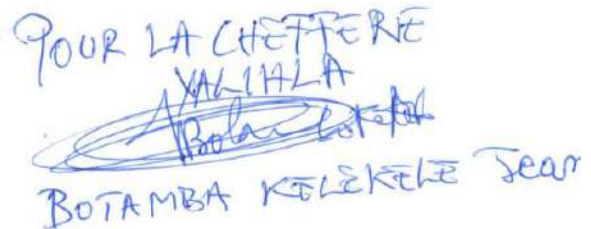 POUR LA CHEFFERIE
YALIHLA
BOTAMBA KELEKELE Jean